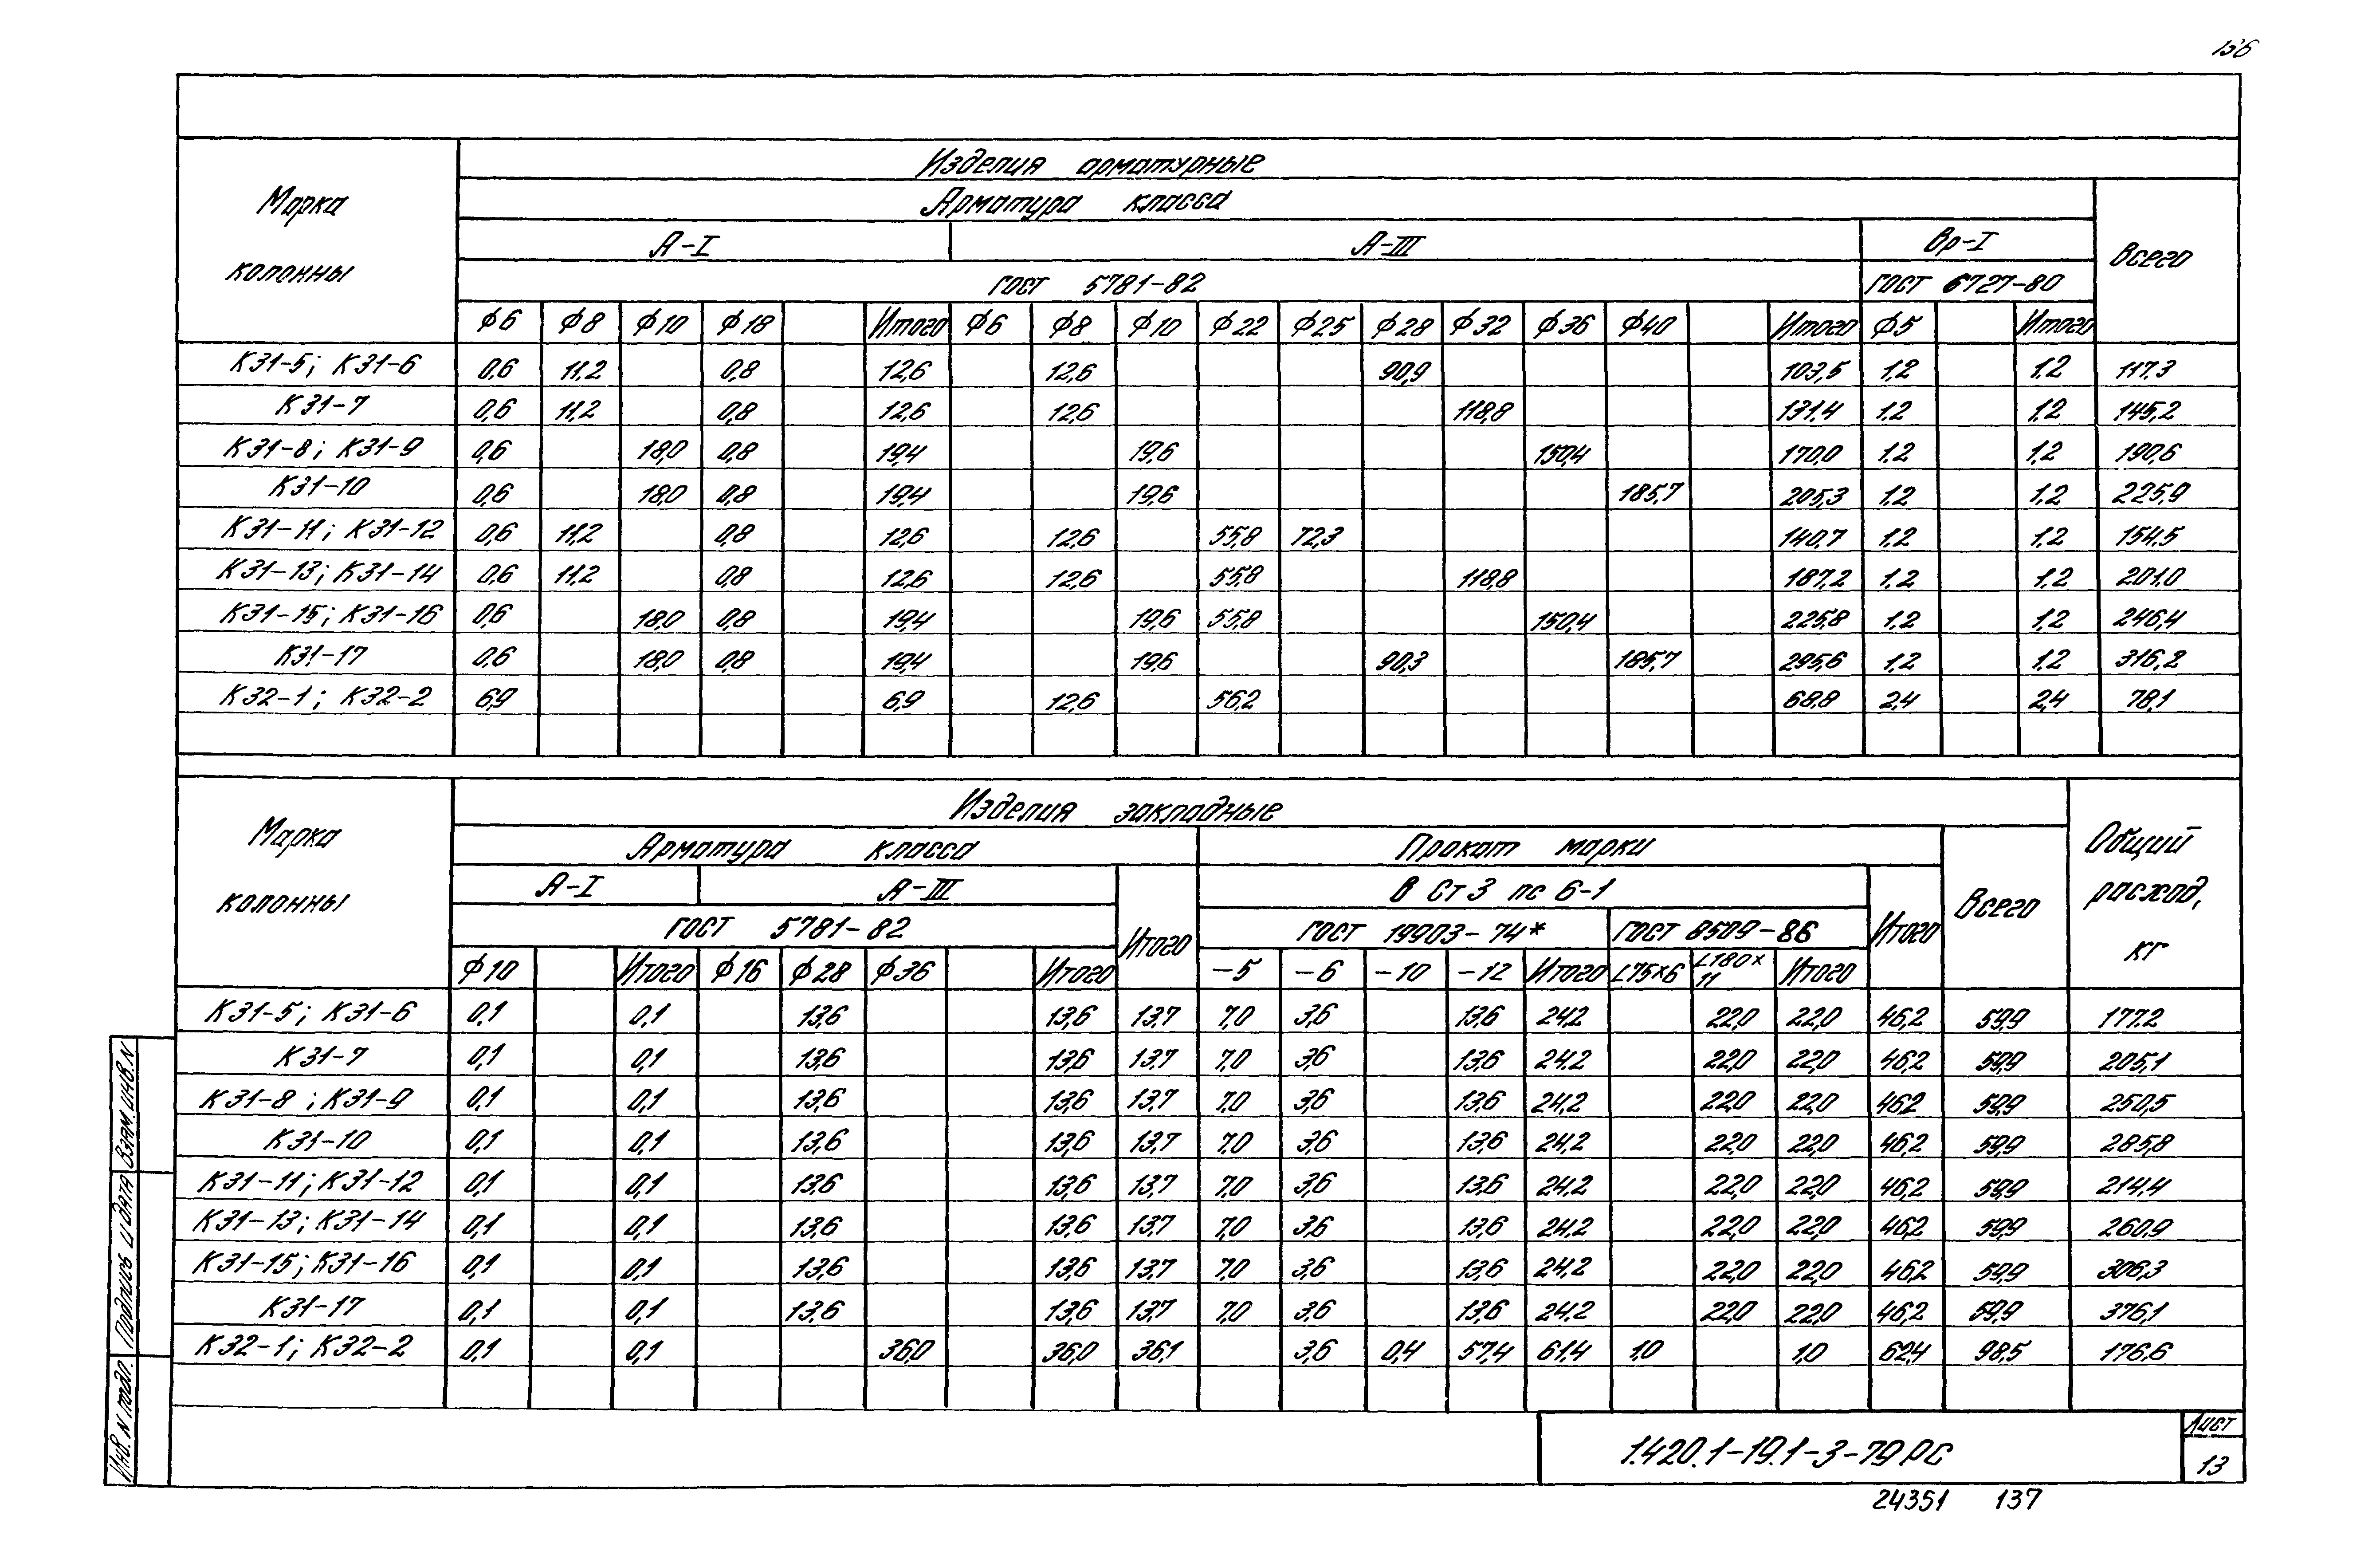 136
Изделия арматурные
Марка колонны
Арматура класса
Всего
А-I А-III Вр-I
ГОСТ 5781-82 ГОСТ 6727-80
ф6 ф8 ф10 ф18 Итого ф6 ф8 ф10 ф22 ф25 ф28 ф32 ф36 ф40 Итого ф5 Итого
К31-5; К31-6 0,6 11,2 0,8 12,6 12,6 90,9 103,5 1,2 1,2 117,3
К31-7 0,6 11,2 0,8 12,6 12,6 118,8 131,4 1,2 1,2 145,2
К31-8; К31-9 0,6 18,0 0,8 19,4 19,6 150,4 170,0 1,2 1,2 190,6
К31-10 0,6 18,0 0,8 19,4 19,6 185,7 205,3 1,2 1,2 225,9
К31-11; К31-12 0,6 11,2 0,8 12,6 12,6 55,8 72,3 140,7 1,2 1,2 154,5
К31-13; К31-14 0,6 11,2 0,8 12,6 12,6 55,8 118,8 187,2 1,2 1,2 201,0
К31-15; К31-16 0,6 18,0 0,8 19,4 19,6 55,8 150,4 225,8 1,2 1,2 246,4
К31-17 0,6 18,0 0,8 19,4 19,6 90,3 185,7 295,6 1,2 1,2 316,2
К32-1; К32-2 6,9 6,9 12,6 56,2 68,8 2,4 2,4 78,1
Изделия закладные
Марка колонны
Арматура класса Прокат марки
Всего
Общий расход, кг
А-I А-III Итого В Ст 3 пс 6-1 Итого
ГОСТ 5781-82 ГОСТ 19903-74* ГОСТ 8509-86
ф10 Итого ф16 ф28 ф36 Итого -5 -6 -10 -12 Итого L75×6 L180×11 Итого
К31-5; К31-6 0,1 0,1 13,6 13,6 13,7 7,0 3,6 13,6 24,2 22,0 22,0 46,2 59,9 177,2
К31-7 0,1 0,1 13,6 13,6 13,7 7,0 3,6 13,6 24,2 22,0 22,0 46,2 59,9 205,1
К31-8; К31-9 0,1 0,1 13,6 13,6 13,7 7,0 3,6 13,6 24,2 22,0 22,0 46,2 59,9 250,5
К31-10 0,1 0,1 13,6 13,6 13,7 7,0 3,6 13,6 24,2 22,0 22,0 46,2 59,9 285,8
К31-11; К31-12 0,1 0,1 13,6 13,6 13,7 7,0 3,6 13,6 24,2 22,0 22,0 46,2 59,9 214,4
К31-13; К31-14 0,1 0,1 13,6 13,6 13,7 7,0 3,6 13,6 24,2 22,0 22,0 46,2 59,9 260,9
К31-15; К31-16 0,1 0,1 13,6 13,6 13,7 7,0 3,6 13,6 24,2 22,0 22,0 46,2 59,9 306,3
К31-17 0,1 0,1 13,6 13,6 13,7 7,0 3,6 13,6 24,2 22,0 22,0 46,2 59,9 376,1
К32-1; К32-2 0,1 0,1 36,0 36,0 36,1 3,6 0,4 57,4 61,4 1,0 1,0 62,4 98,5 176,6
Инв. N подл. Подпись и дата Взам. инв. N
1.420.1-19.1-3-79 РС
Лист
13
24351 137